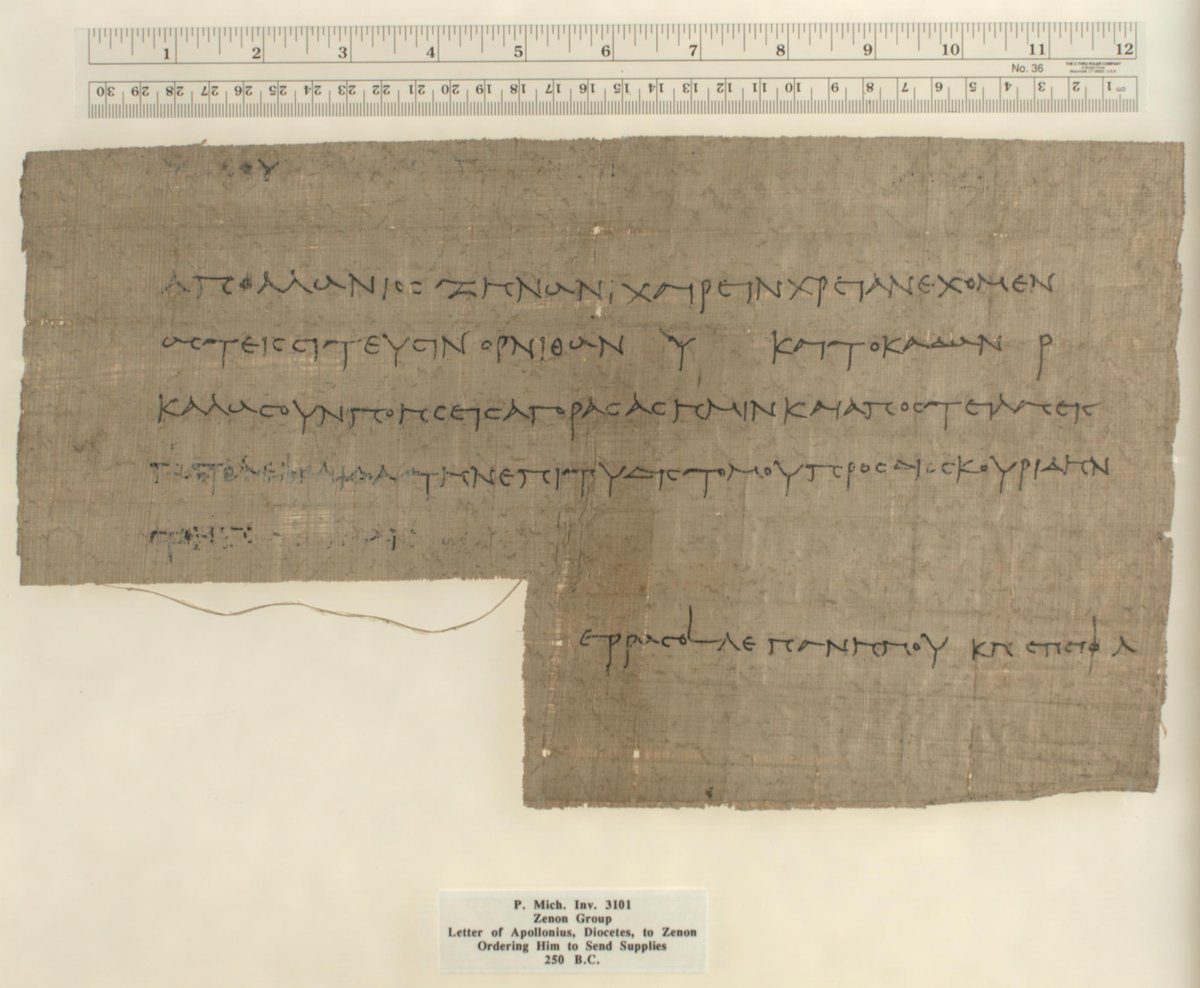 1 2 3 4 5 6 7 8 9 10 11 12
No. 36
THE C-THRU RULER COMPANY
30 29 28 27 26 25 24 23 22 21 20 19 18 17 16 15 14 13 12 11 10 9 8 7 6 5 4 3 2 1 cm
απολλωνιος ζηνωνι χαιρειν χρειαν εχομεν
ωστ εις σιτευσιν ορνιθων υ και τοκαδων ρ
καλως ουν ποησεις αγορασας ημιν και αποστειλας εις
την επι του διστομου προς διοσκουριδην
ερρωσο L λε πανημου κη επειφ λ
P. Mich. Inv. 3101
Zenon Group
Letter of Apollonius, Diocetes, to Zenon
Ordering Him to Send Supplies
250 B.C.